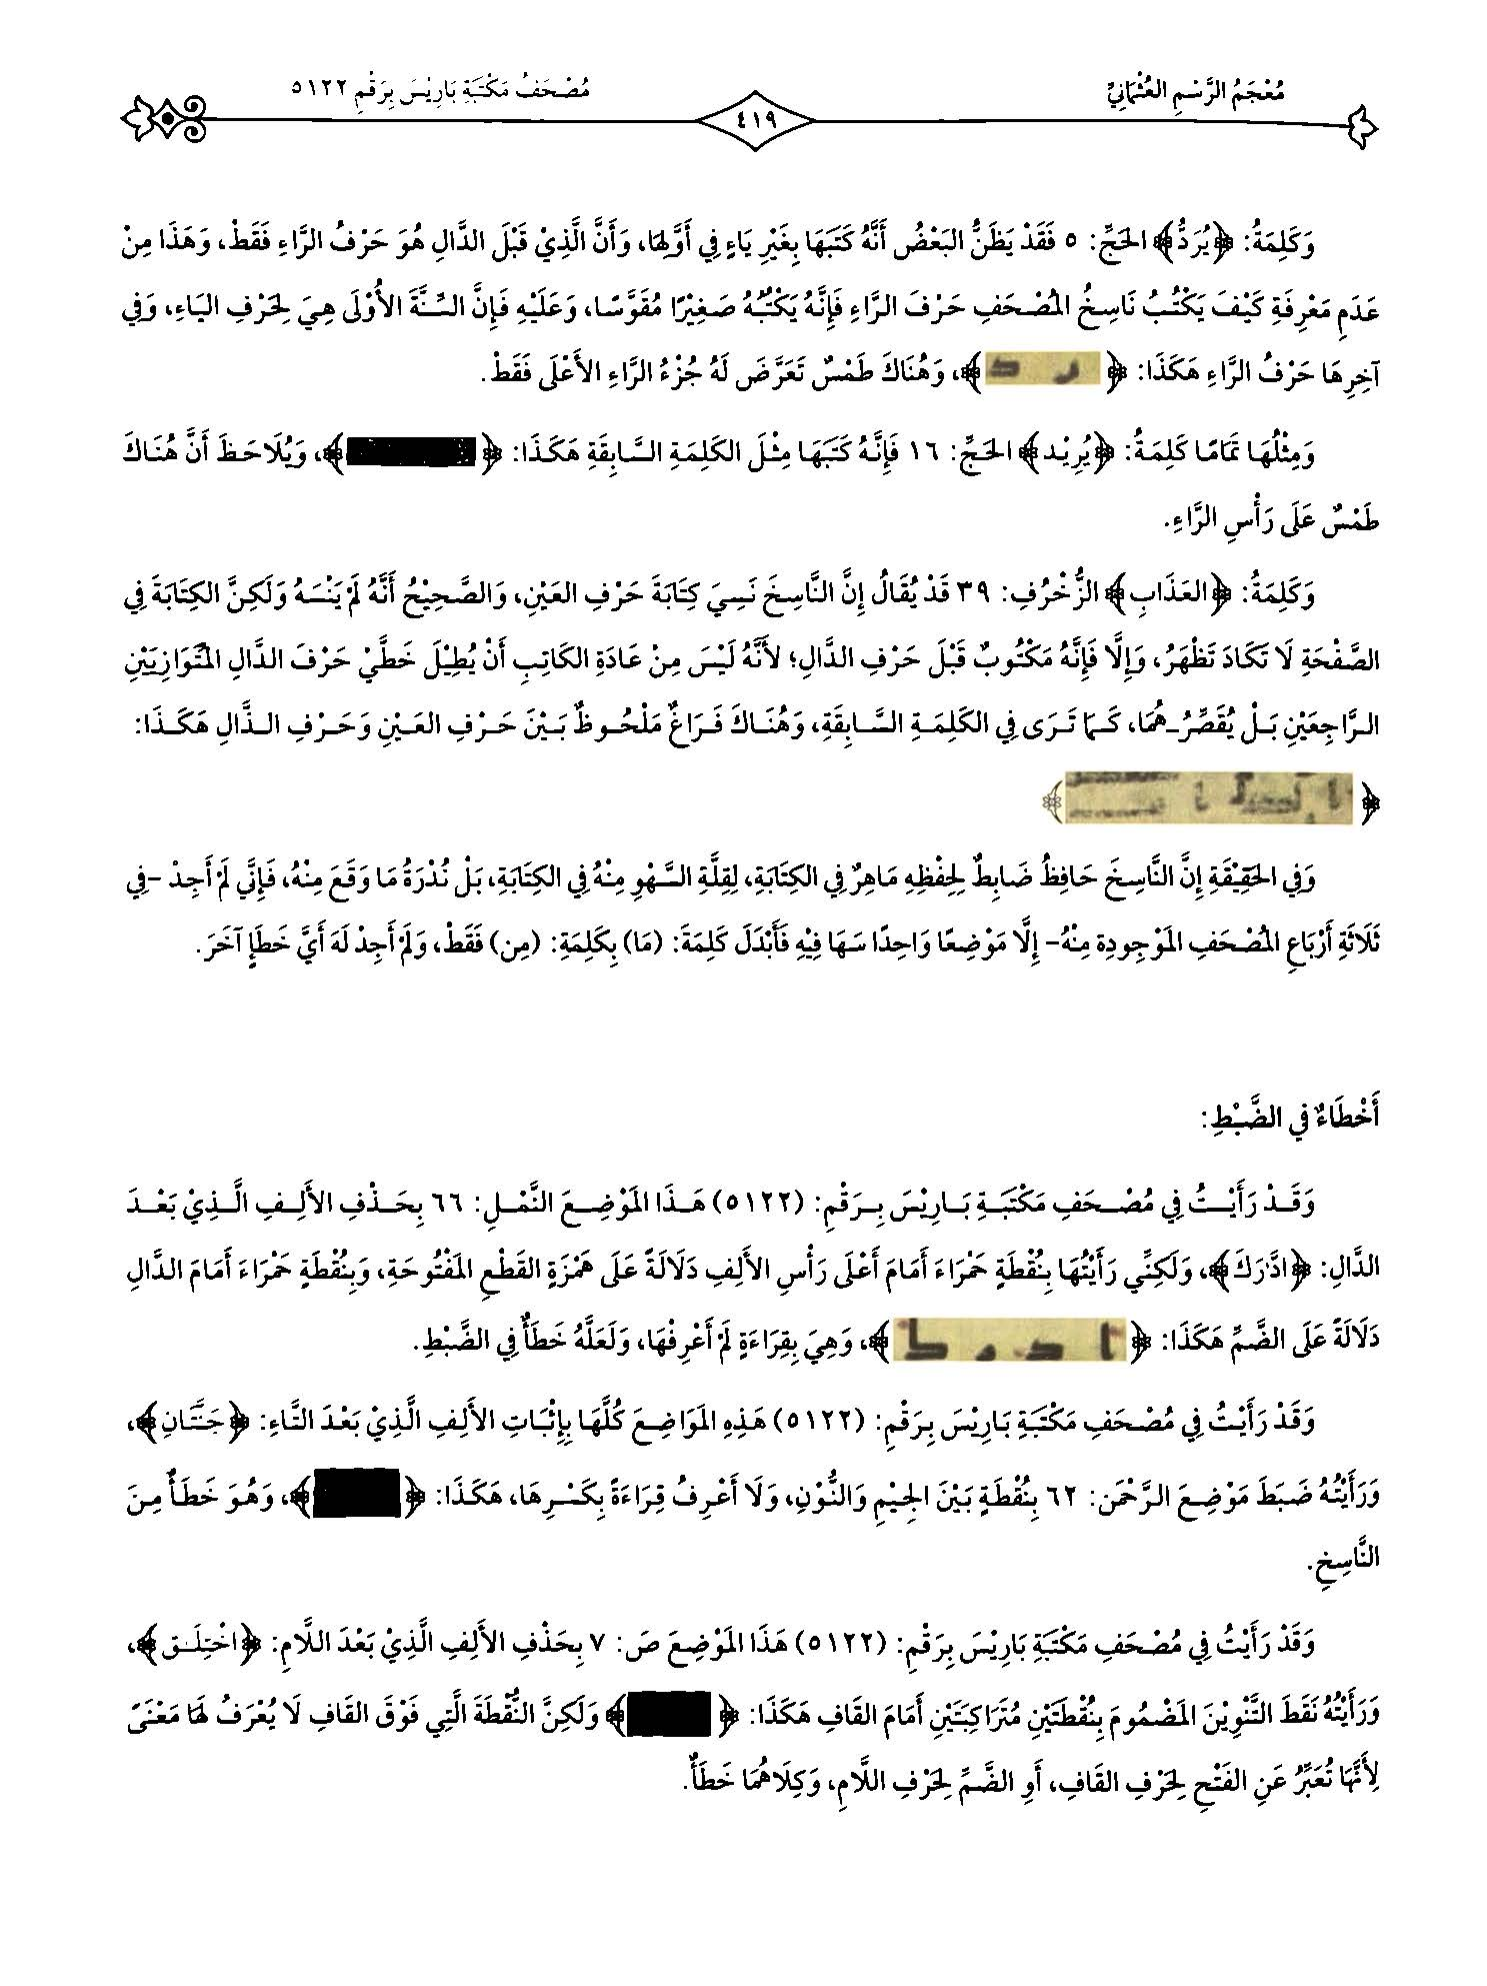 مُعْجَمُ الرَّسْمِ العُثْمَانِيِّ
٤١٩
مُصْحَفُ مَكْتَبَةِ بَارِيْسَ بِرَقْمِ ٥١٢٢
وَكَلِمَةُ: ﴿يُرَدُّ﴾ الحَجِّ: ٥ فَقَدْ يَظَنُّ البَعْضُ أَنَّهُ كَتَبَهَا بِغَيْرِ يَاءٍ فِي أَوَّلِهَا، وَأَنَّ الَّذِيْ قَبْلَ الدَّالِ هُوَ حَرْفُ الرَّاءِ فَقَطْ، وَهَذَا مِنْ
عَدَمِ مَعْرِفَةِ كَيْفَ يَكْتُبُ نَاسِخُ المُصْحَفِ حَرْفَ الرَّاءِ فَإِنَّهُ يَكْتُبُهُ صَغِيْرًا مُقَوَّسًا، وَعَلَيْهِ فَإِنَّ السِّنَّةَ الأُوْلَى هِيَ لِحَرْفِ اليَاءِ، وَفِي
آخِرِهَا حَرْفُ الرَّاءِ هَكَذَا: ﴿ ﴾، وَهُنَاكَ طَمْسٌ تَعَرَّضَ لَهُ جُزْءُ الرَّاءِ الأَعْلَى فَقَطْ.
وَمِثْلُهَا تَمَامًا كَلِمَةُ: ﴿يُرِيْد﴾ الحَجِّ: ١٦ فَإِنَّهُ كَتَبَهَا مِثْلَ الكَلِمَةِ السَّابِقَةِ هَكَذَا: ﴿ ﴾، وَيُلَاحَظَ أَنَّ هُنَاكَ
طَمْسٌ عَلَى رَأْسِ الرَّاءِ.
وَكَلِمَةُ: ﴿العَذَابِ﴾ الزُّخْرُفِ: ٣٩ قَدْ يُقَالُ إِنَّ النَّاسِخَ نَسِيَ كِتَابَةَ حَرْفِ العَيْنِ، وَالصَّحِيْحُ أَنَّهُ لَمْ يَنْسَهُ وَلَكِنَّ الكِتَابَةَ فِي
الصَّفْحَةِ لَا تَكَادَ تَظْهَرُ، وَإِلَّا فَإِنَّهُ مَكْتُوبٌ قَبْلَ حَرْفِ الدَّالِ؛ لأَنَّهُ لَيْسَ مِنْ عَادَةِ الكَاتِبِ أَنْ يُطِيْلَ خَطَّيْ حَرْفَ الدَّالِ المُتَوَازِيَيْنِ
الرَّاجِعَيْنِ بَلْ يُقَصِّرُهُمَا، كَمَا تَرَى فِي الكَلِمَةِ السَّابِقَةِ، وَهُنَاكَ فَرَاغٌ مَلْحُوظٌ بَيْنَ حَرْفِ العَيْنِ وَحَرْفِ الذَّالِ هَكَذَا:
﴿ ﴾
وَفِي الحَقِيْقَةِ إِنَّ النَّاسِخَ حَافِظٌ ضَابِطٌ لِحِفْظِهِ مَاهِرٌ فِي الكِتَابَةِ، لِقِلَّةِ السَّهْوِ مِنْهُ فِي الكِتَابَةِ، بَلْ نُدْرَةُ مَا وَقَعَ مِنْهُ، فَإِنِّي لَمْ أَجِدْ -فِي
ثَلَاثَةِ أَرْبَاعِ المُصْحَفِ المَوْجُودِة مِنْهُ- إِلَّا مَوْضِعًا وَاحِدًا سَهَا فِيْهِ فَأَبْدَلَ كَلِمَةَ: (مَا) بِكَلِمَةِ: (مِن) فَقَطْ، وَلَمْ أَجِدْ لَهَ أَيَّ خَطَإٍ آخَرَ.
أَخْطَاءٌ فِي الضَّبْطِ:
وَقَدْ رَأَيْتُ فِي مُصْحَفِ مَكْتَبَةِ بَارِيْسَ بِرَقْمِ: (٥١٢٢) هَذَا المَوْضِعَ النَّمْلِ: ٦٦ بِحَذْفِ الأَلِفِ الَّذِيْ بَعْدَ
الدَّالِ: ﴿ادَّٰرَكَ﴾، وَلَكِنِّي رَأَيْتُهَا بِنُقْطَةٍ حَمْرَاءَ أَمَامَ أَعْلَى رَأْسِ الأَلِفِ دَلَالَةً عَلَى هَمْزَةٍ القَطْعِ المَفْتُوحَةِ، وَبِنُقْطَةٍ حَمْرَاءَ أَمَامَ الدَّالِ
دَلَالَةً عَلَى الضَّمِّ هَكَذَا: ﴿ ﴾، وَهِيَ بِقِرَاءَةٍ لَمْ أَعْرِفْهَا، وَلَعَلَّهُ خَطَأٌ فِي الضَّبْطِ.
وَقَدْ رَأَيْتُ فِي مُصْحَفِ مَكْتَبَةِ بَارِيْسَ بِرَقْمِ: (٥١٢٢) هَذِهِ المَوَاضِعَ كُلَّهَا بِإِثْبَاتِ الأَلِفِ الَّذِيْ بَعْدَ التَّاءِ: ﴿جَنَّتَانِ﴾،
وَرَأَيْتُهُ ضَبَطَ مَوْضِعَ الرَّحْمَن: ٦٢ بِنُقْطَةٍ بَيْنَ الجِيْمِ وَالنُّوْنِ، وَلَا أَعْرِفُ قِرَاءَةً بِكَسْرِهَا، هَكَذَا: ﴿ ﴾، وَهُوَ خَطَأٌ مِنَ
النَّاسِخِ.
وَقَدْ رَأَيْتُ فِي مُصْحَفِ مَكْتَبَةِ بَارِيْسَ بِرَقْمِ: (٥١٢٢) هَذَا المَوْضِعَ صَ: ٧ بِحَذْفِ الأَلِفِ الَّذِيْ بَعْدَ اللَّامِ: ﴿اخْتِلَٰق﴾،
وَرَأَيْتُهُ نَقَطَ التَّنْوِيْنَ المَضْمُومَ بِنُقْطَتَيْنِ مُتَرَاكِبَتَيْنِ أَمَامَ القَافِ هَكَذَا: ﴿ ﴾ وَلَكِنَّ النُّقْطَةَ الَّتِي فَوْقَ القَافِ لَا يُعْرَفُ لَهَا مَعْنًى
لِأَنَّهَا تُعَبِّرُ عَنِ الفَتْحِ لِحَرْفِ القَافِ، أَوِ الضَّمِّ لِحَرْفِ اللَّامِ، وَكِلَاهُمَا خَطَأٌ.